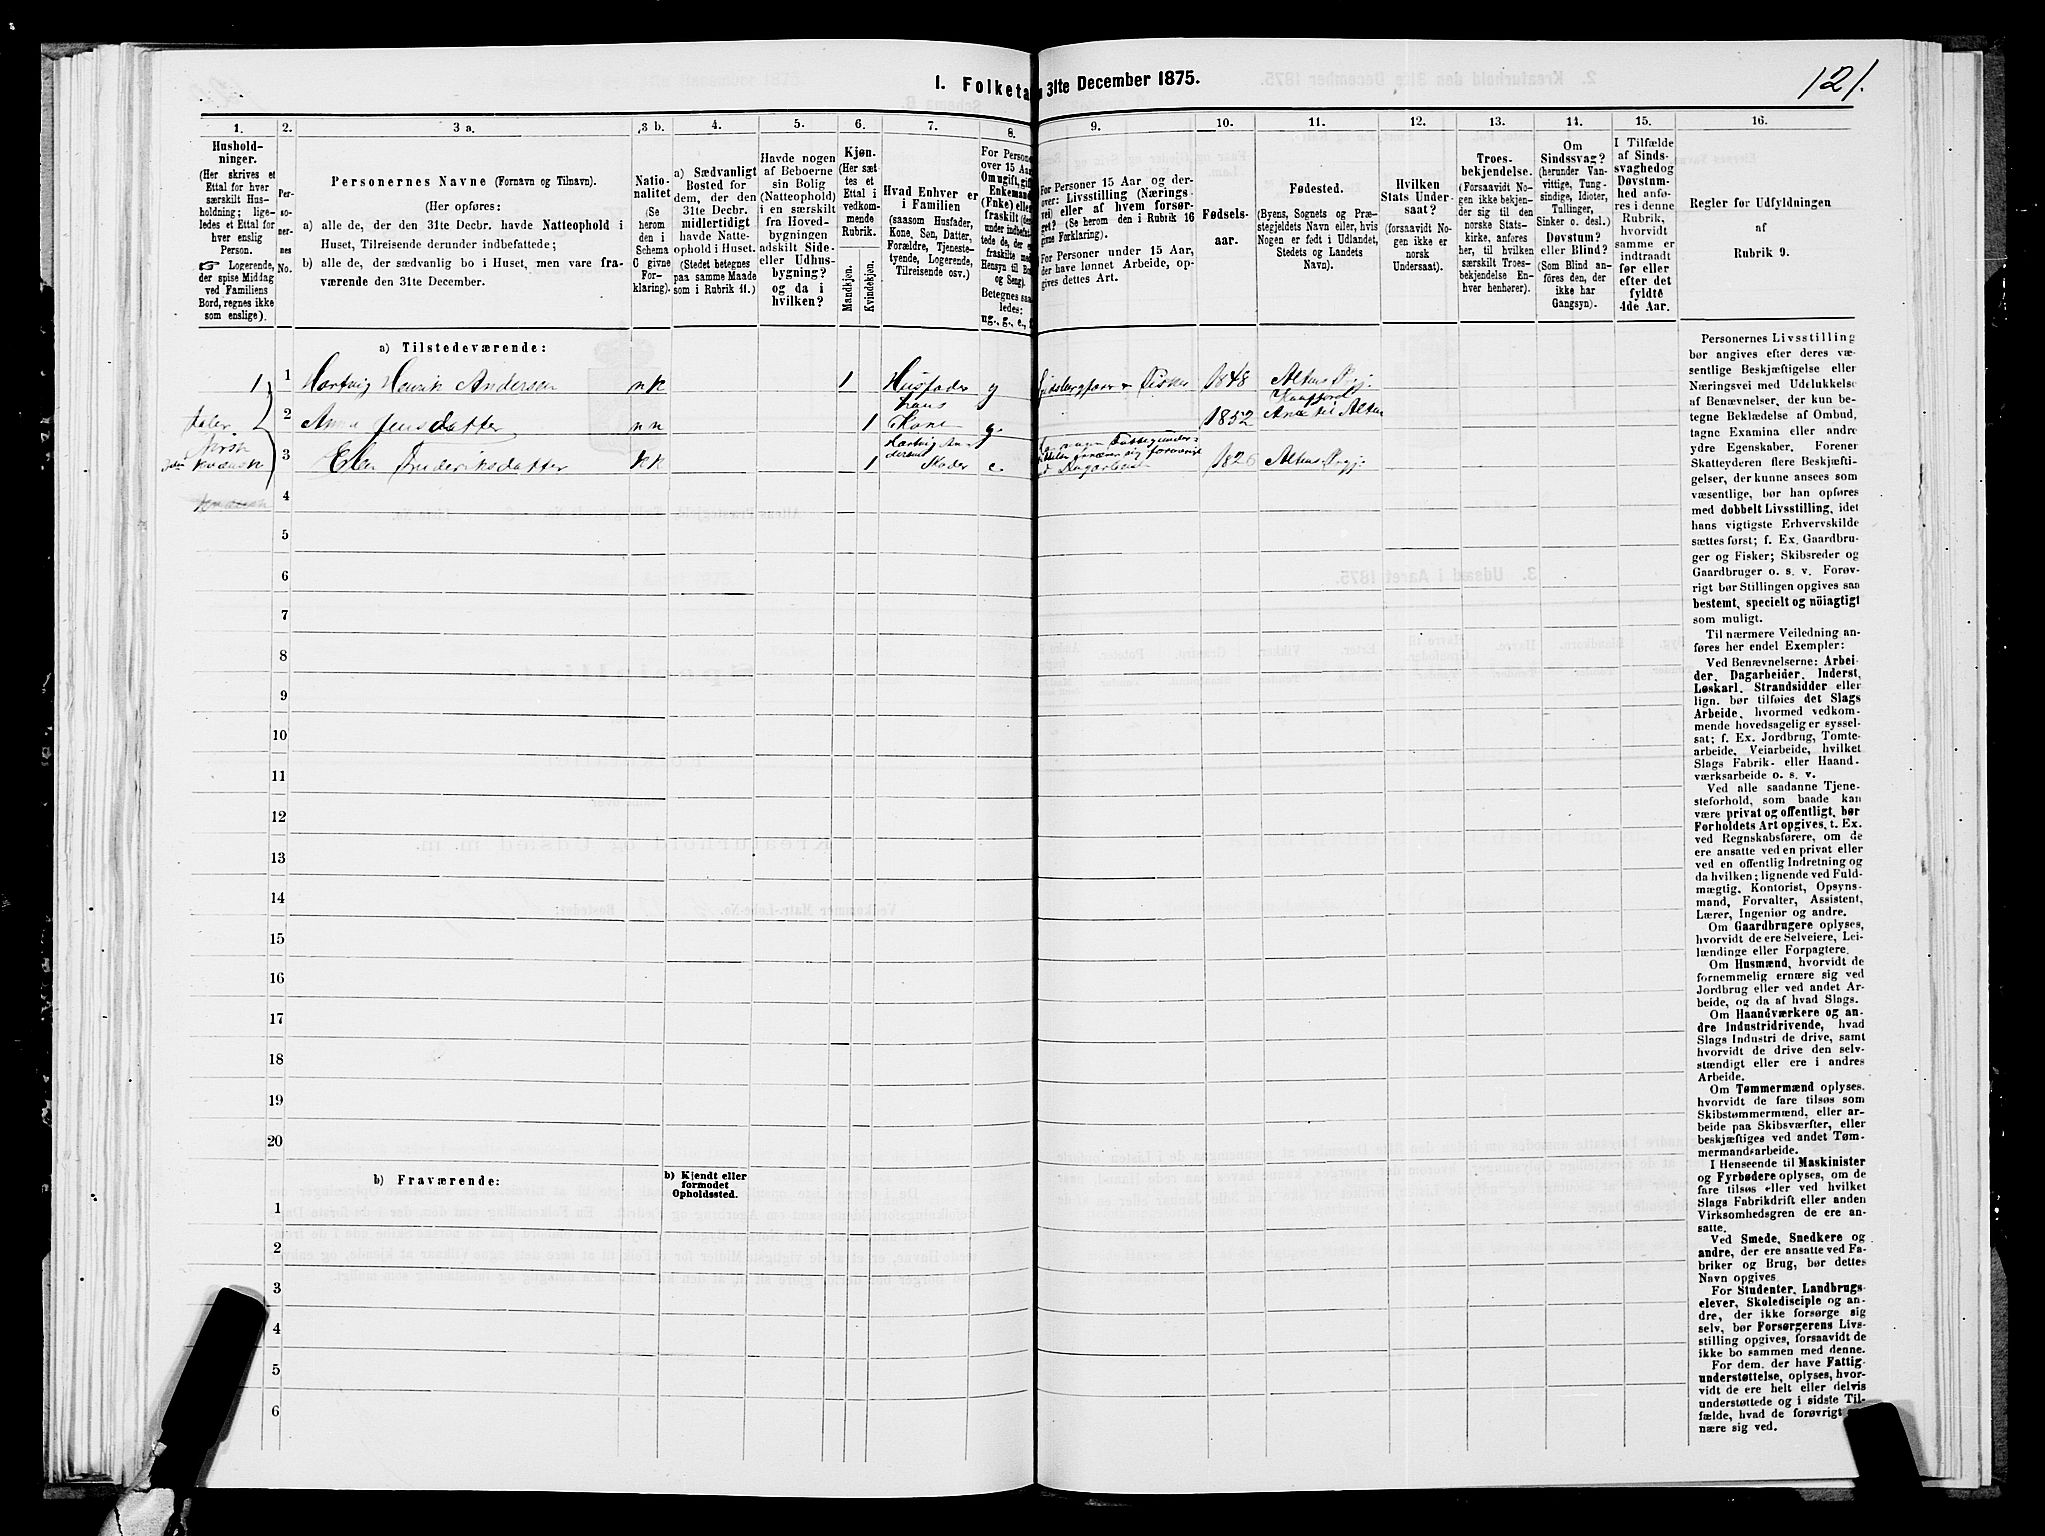 121.
I. Folketa 31te December 1875.
1. 2. 3 a. 3 b. 4. 5. 6. 7. 8. 9. 10. 11. 12. 13. 14. 15. 16.
Hushold-
ninger.
(Her skrives et
Ettal for hver
særskilt Hus-
holdning; lige-
ledes et Ettal for
hver enslig
Person.
☞ Logerende,
der spise Middag
ved Familiens
Bord, regnes ikke
som enslige).
Per-
so-
ner-
nes
No.
Personernes Navne (Fornavn og Tilnavn).
(Her opføres:
a) alle de, der den 31te Decbr. havde Natteophold i
Huset, Tilreisende derunder indbefattede;
b) alle de, der sædvanlig bo i Huset, men vare fra-
værende den 31te December.
Natio-
nalitet
(Se
herom
den i
Schema
C givne
For-
klaring).
a) Sædvanligt
Bosted for
dem, der den
31te Decbr.
midlertidigt
havde Natte-
ophold i Huset.
(Stedet betegnes
paa samme Maade
som i Rubrik 11.)
Havde nogen
af Beboerne
sin Bolig
(Natteophold)
i en særskilt
fra Hoved-
bygningen
adskilt Side-
eller Udhus-
bygning?
og da i
hvilken?
Kjøn.
(Her sæt-
tes et
Ettal i
vedkom-
mende
Rubrik.
Mandkjøn.
Kvindekjøn.
Hvad Enhver er
i Familien
(saasom Husfader,
Kone, Søn, Datter,
Forældre, Tjeneste-
tyende, Logerende,
Tilreisende osv.)
For Persone
over 15 Aar
Omugift, gift
Enkemand
(Enke) eller
fraskilt
under indbefat-
tede de, der er
fraskilte med
Hensyn til Bo
og Seng).
Betegnes saa-
ledes:
ug., g., e.,
For Personer 15 Aar og der-
over: Livsstilling (Nærings-
vei) eller af hvem forsør-
get? (Se herom den i Rubrik 16
givne Forklaring).
For Personer under 15 Aar,
der have lønnet Arbeide, op-
gives dettes Art.
Fødsels-
aar.
Fødested.
(Byens, Sognets og Præ-
stegjeldets Navn eller, hvis
Nogen er født i Udlandet,
Stedets og Landets
Navn).
Hvilken
Stats Under-
saat?
(forsaavidt No-
gen ikke er
norsk
Undersaat).
Troes-
bekjendelse.
(Forsaavidt No-
gen ikke bekjen-
der sig til den
norske Stats-
kirke, anføres
her, til hvilken
særskilt Troes-
bekjendelse En-
hver henhører).
Om
Sindssvag?
(herunder Van-
vittige, Tung-
sindige, Idioter,
Tullinger,
Sinker o. desl.)
Døvstum?
eller Blind?
(Som Blind an-
føres den, der
ikke har
Gangsyn).
I Tilfælde
af Sinds-
svaghed og
Døvstum-
hed anfø-
res i denne
Rubrik,
hvorvidt
samme er
indtraadt
før eller
efter det
fyldte
4de Aar.
Regler for Udfyldningen
af
Rubrik 9.
a) Tilstedeværende:
1 1 Hartvig Henrik Andersen nk 1 Husfader g Fisker 1848 Altens Prgj.
Kaafjord
taler norsk kvænsk
hans
2 Anne Jensdatter nn 1 Kone g. 1852 Alten
Hartvig An-
dersens
3 Elen Frederiksdatter kk 1 Moder e. 1826 Altens Prgj.
4
5
6
7
8
9
10
11
12
13
14
15
16
17
18
19
20
b) Fraværende:
b) Kjendt eller
formodet
Opholdssted.
1
2
3
4
5
6
Personernes Livsstilling
bør angives efter deres væ-
sentlige Beskjæftigelse eller
Næringsvei med Udelukkelse
af Benævnelser, der kun be-
tegne Beklædelse af Ombud,
tagne Examina eller andre
ydre Egenskaber. Forener
Skatteyderen flere Beskjæfti-
gelser, der kunne ansees som
væsentlige, bør han opføres
med dobbelt Livsstilling, idet
hans vigtigste Erhvervskilde
sættes først; f. Ex. Gaardbru-
ger og Fisker; Skibsreder og
Gaardbruger o. s. v. Forøv-
rigt bør Stillingen opgives saa
bestemt, specielt og nöiagtigt
som muligt.
Til nærmere Veiledning an-
føres her endel Exempler:
Ved Benævnelserne: Arbei-
der, Dagarbeider, Inderst,
Løskarl, Strandsidder eller
lign. bør tilføies det Slags
Arbeide, hvormed vedkom-
mende hovedsagelig er syssel-
sat; f. Ex. Jordbrug, Tomte-
arbeide, Veiarbeide, hvilket
Slags Fabrik- eller Haand-
værksarbeide o. s. v.
Ved alle saadanne Tjene-
steforhold, som baade kan
være privat og offentligt, bør
Forholdets Art opgives, t. Ex.
ved Regnskabsførere, om de
ere ansatte ved en privat eller
ved en offentlig Indretning og
da hvilken; lignende ved Fuld-
mægtig, Kontorist, Opsyns-
mand, Forvalter, Assistent,
Lærer, Ingeniør og andre.
Om Gaardbrugere oplyses,
hvorvidt de ere Selveiere, Lei-
lændinge eller Forpagtere
Om Husmænd, hvorvidt de
fornemmelig ernære sig ved
Jordbrug eller ved andet Ar-
beide, og da af hvad Slags.
Om Haandværkere og an-
dre Industridrivende, hvad
Slags Industri de drive, samt
hvorvidt de drive den selv-
stændigt eller ere i andres
Arbeide.
Om Tømmermænd oplyses,
hvorvidt de fare tilsøs som
Skibstømmermænd, eller ar-
beide paa Skibsværfter, eller
beskjæftiges ved andet Tøm-
mermandsarbeide.
I Henseende til Maskinister
og Fyrbødere oplyses, om de
fare tilsøs eller ved hvilket
Slags Fabrikdrift eller anden
Virksomhedsgren de ere an-
satte.
Ved Smede, Snedkere og
andre, der ere ansatte ved Fa-
briker og Brug, bør dettes
Navn opgives
For Studenter, Landbrugs-
elever, Skoledisciple og an-
dre, der ikke forsørge sig
selv, bør Forsørgerens Livs-
stilling opgives, forsaavidt de
ikke bo sammen med denne.
For dem, der have Fattig-
understøttelse, oplyses, hvor-
vidt de ere helt eller delvis
understøttede og i sidste Til-
fælde, hvad de forøvrigt
nære sig ved.